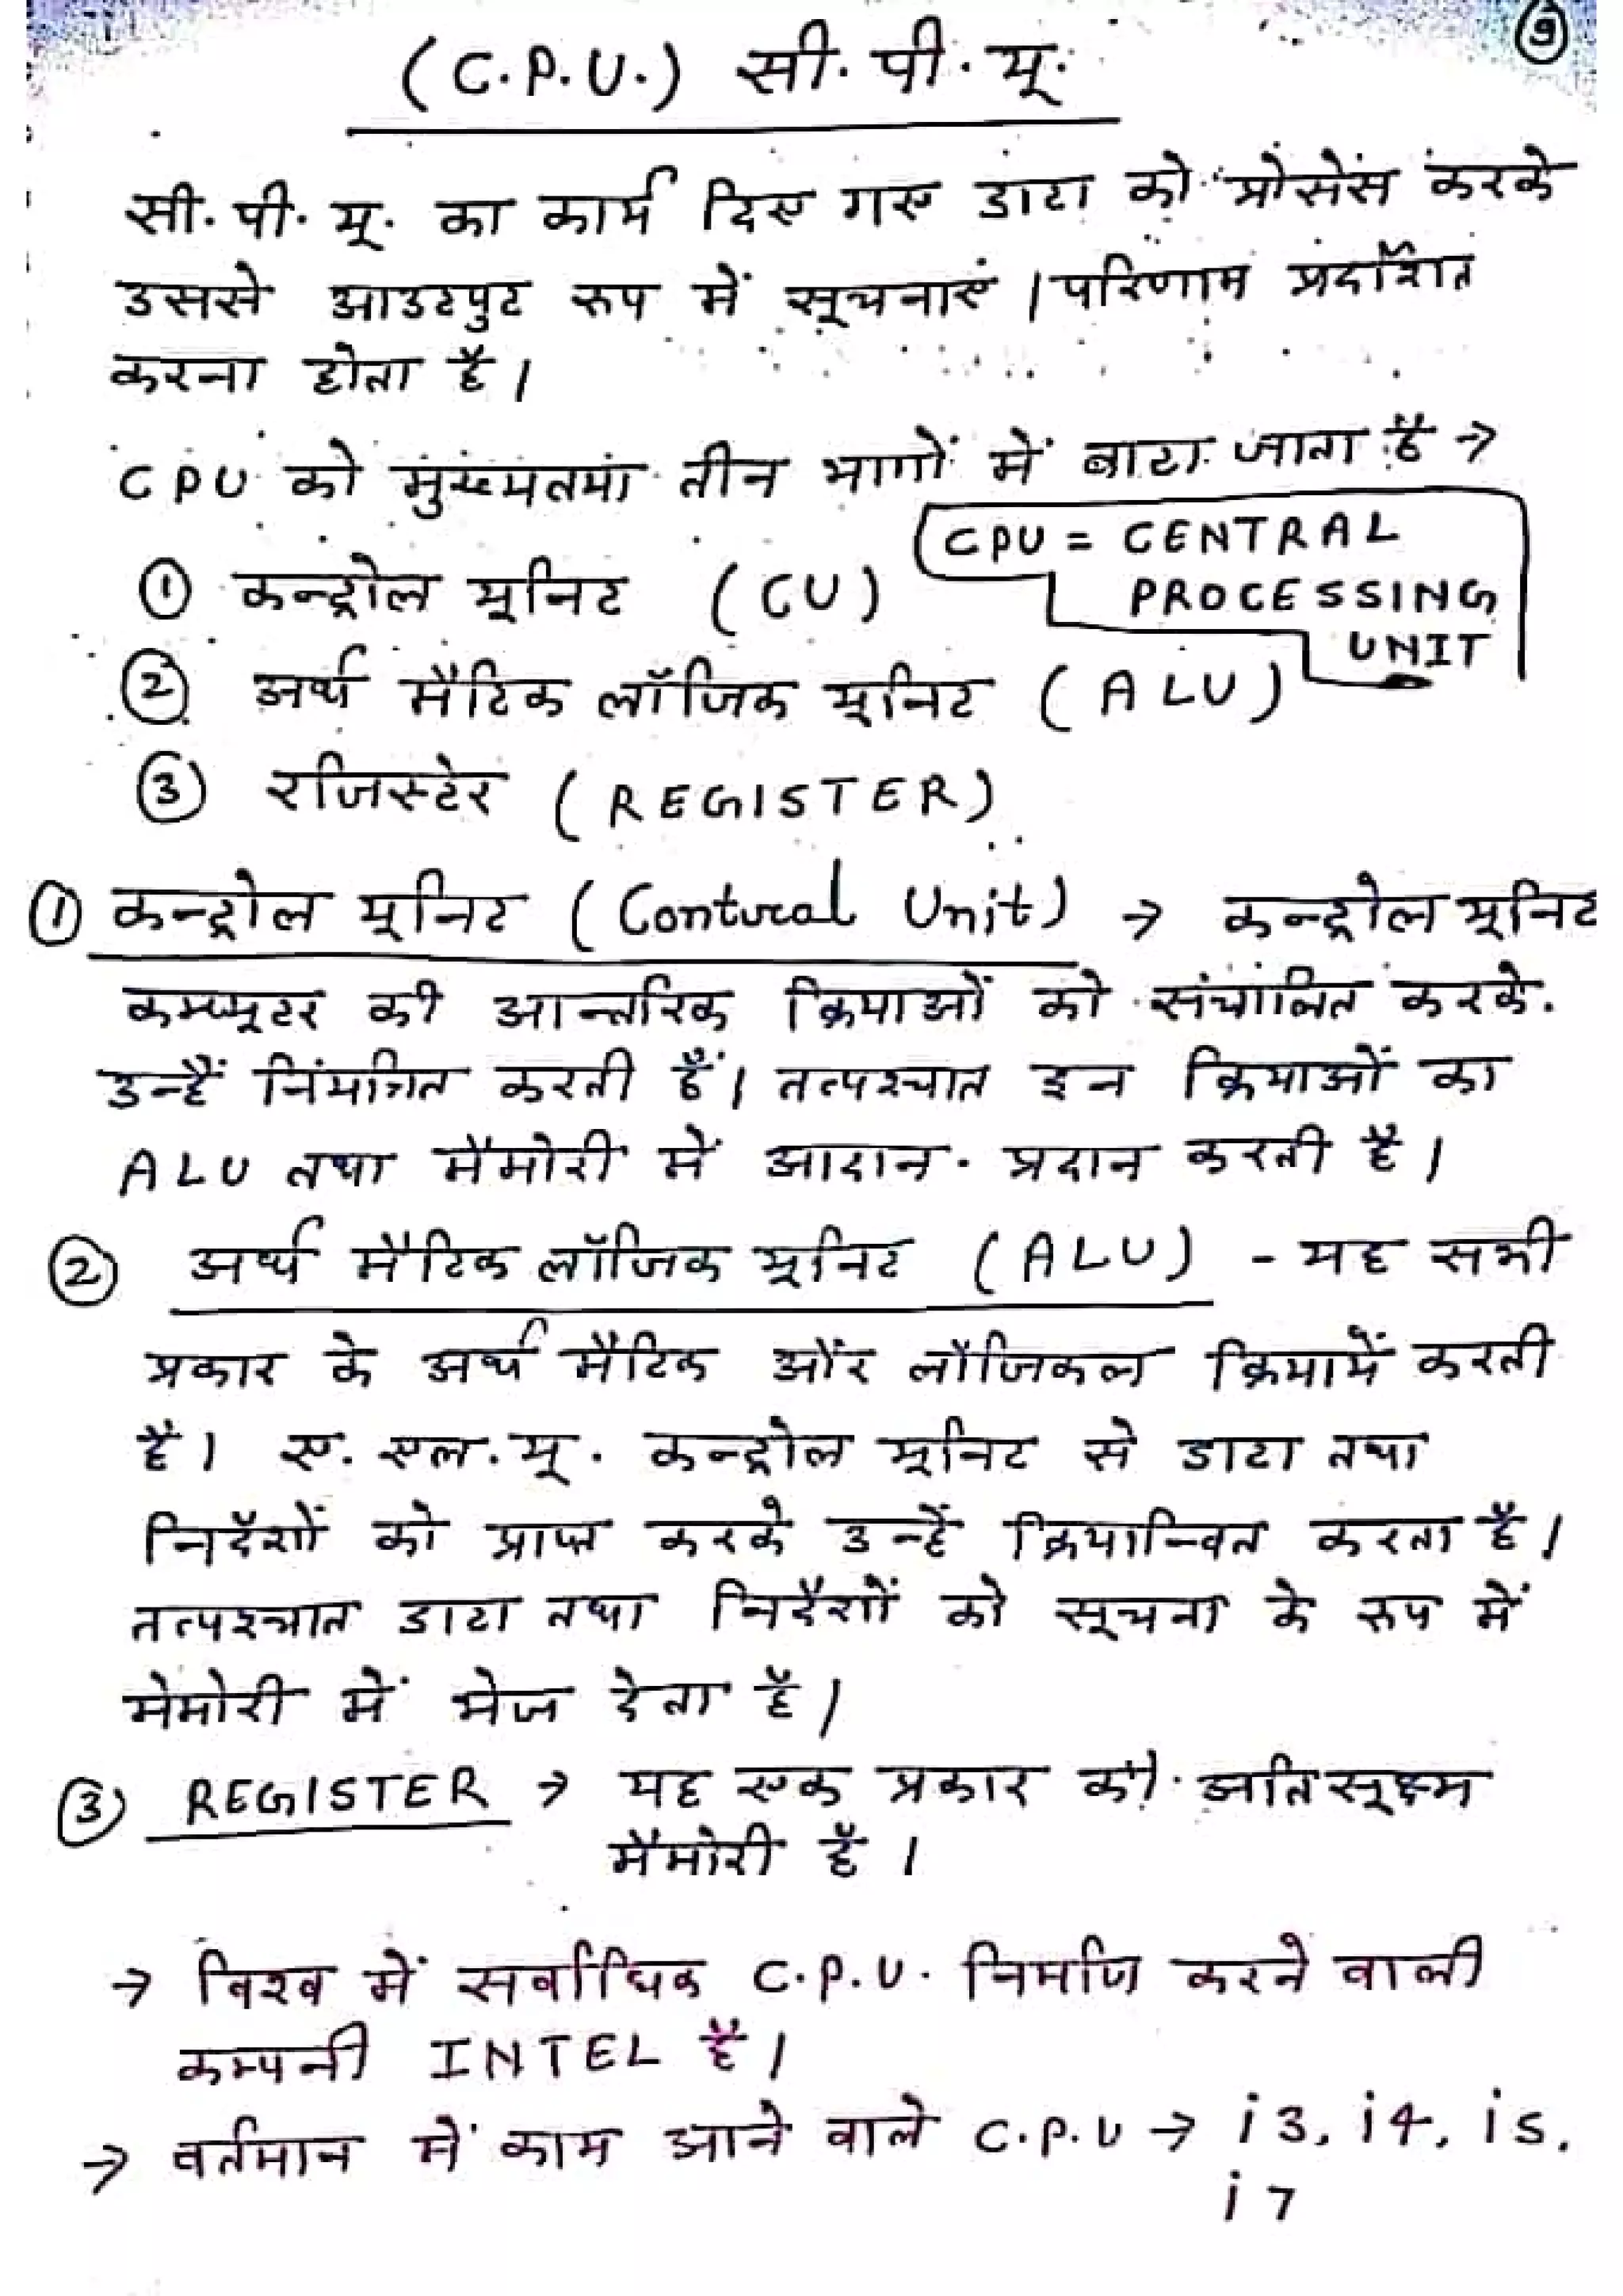 9
(C.P.U.) सी. पी. यू.
सी. पी. यू. का कार्य दिए गए डाटा को प्रोसेस करके
उससे आउटपुट रूप में सूचनाएं / परिणाम प्रदर्शित
करना होता है।
CPU को मुख्यतया तीन भागों में बाटा जाता है →
CPU = CENTRAL
PROCESSING
UNIT
① कन्ट्रोल यूनिट (CU)
② अर्थ मैटिक लॉजिक यूनिट (ALU)
③ रजिस्टेर (REGISTER)
① कन्ट्रोल यूनिट (Contural Unit) → कन्ट्रोल यूनिट
कम्प्यूटर की आन्तरिक क्रियाओं को संचालित करके
उन्हें नियंत्रित करती है। तत्पश्चात इन क्रियाओं का
ALU तथा मैमोरी में आदान-प्रदान करती है।
② अर्थ मैटिक लॉजिक यूनिट (ALU) - यह सभी
प्रकार के अर्थ मैटिक और लॉजिकल क्रियायें करती
है। ए. एल. यू. कन्ट्रोल यूनिट से डाटा तथा
निर्देशों को प्राप्त करके उन्हें क्रियान्वित करता है।
तत्पश्चात डाटा तथा निर्देशों को सूचना के रूप में
मेमोरी में भेज देता है।
③ REGISTER → यह एक प्रकार की अति सूक्ष्म
मैमोरी है।
→ विश्व में सर्वाधिक C.P.U. निर्माण करने वाली
कम्पनी INTEL है।
→ वर्तमान में काम आने वाले C.P.U → i3, i4, i5,
i7